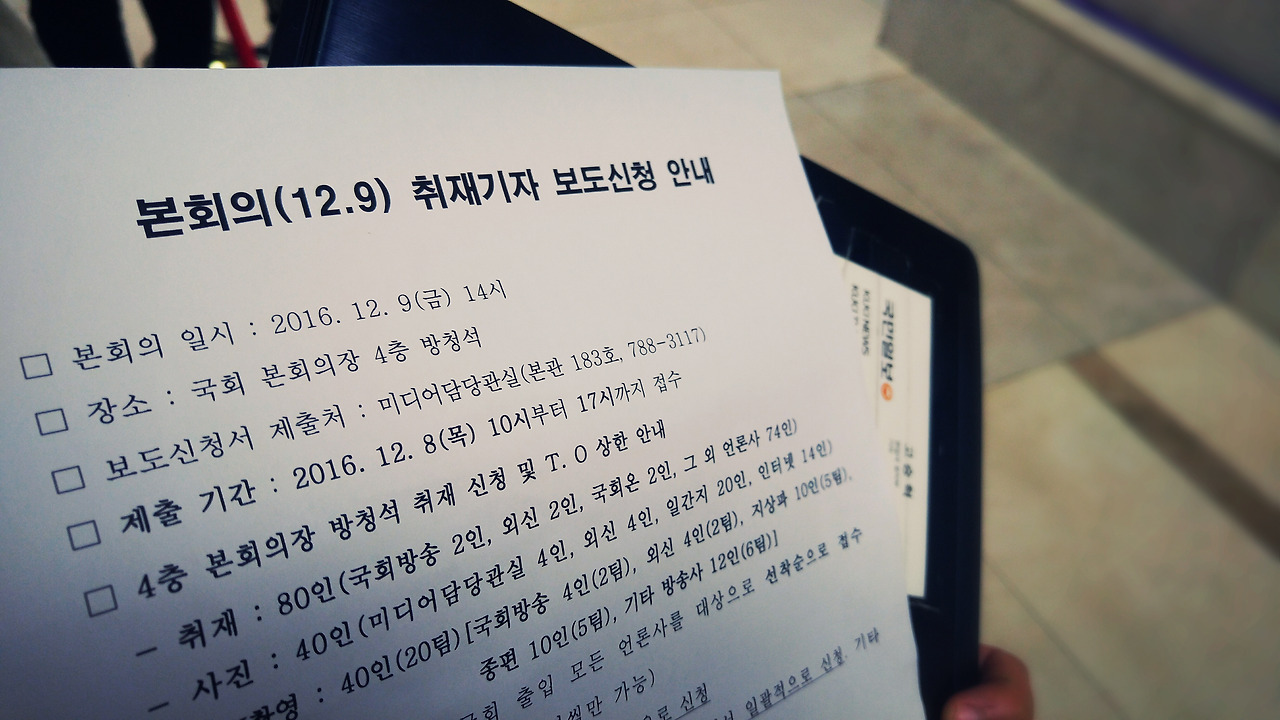 본회의(12.9) 취재기자 보도신청 안내
□ 본회의 일시 : 2016. 12. 9(금) 14시
□ 장소 : 국회 본회의장 4층 방청석
□ 보도신청서 제출처 : 미디어담당관실(본관 183호, 788-3117)
□ 제출 기간 : 2016. 12. 8(목) 10시부터 17시까지 접수
□ 4층 본회의장 방청석 취재 신청 및 T.O 상한 안내
- 취재 : 80인(국회방송 2인, 외신 2인, 국회온 2인, 그 외 언론사 74인)
- 사진 : 40인(미디어담당관실 4인, 외신 4인, 일간지 20인, 인터넷 14인)
촬영 : 40인(20팀)[국회방송 4인(2팀), 외신 4인(2팀), 지상파 10인(5팀),
종편 10인(5팀), 기타 방송사 12인(6팀)]
국회 출입 모든 언론사를 대상으로 선착순으로 접수
만 가능)
으로 신청
일괄적으로 신청, 기타
국민일보
KUKI NEWS